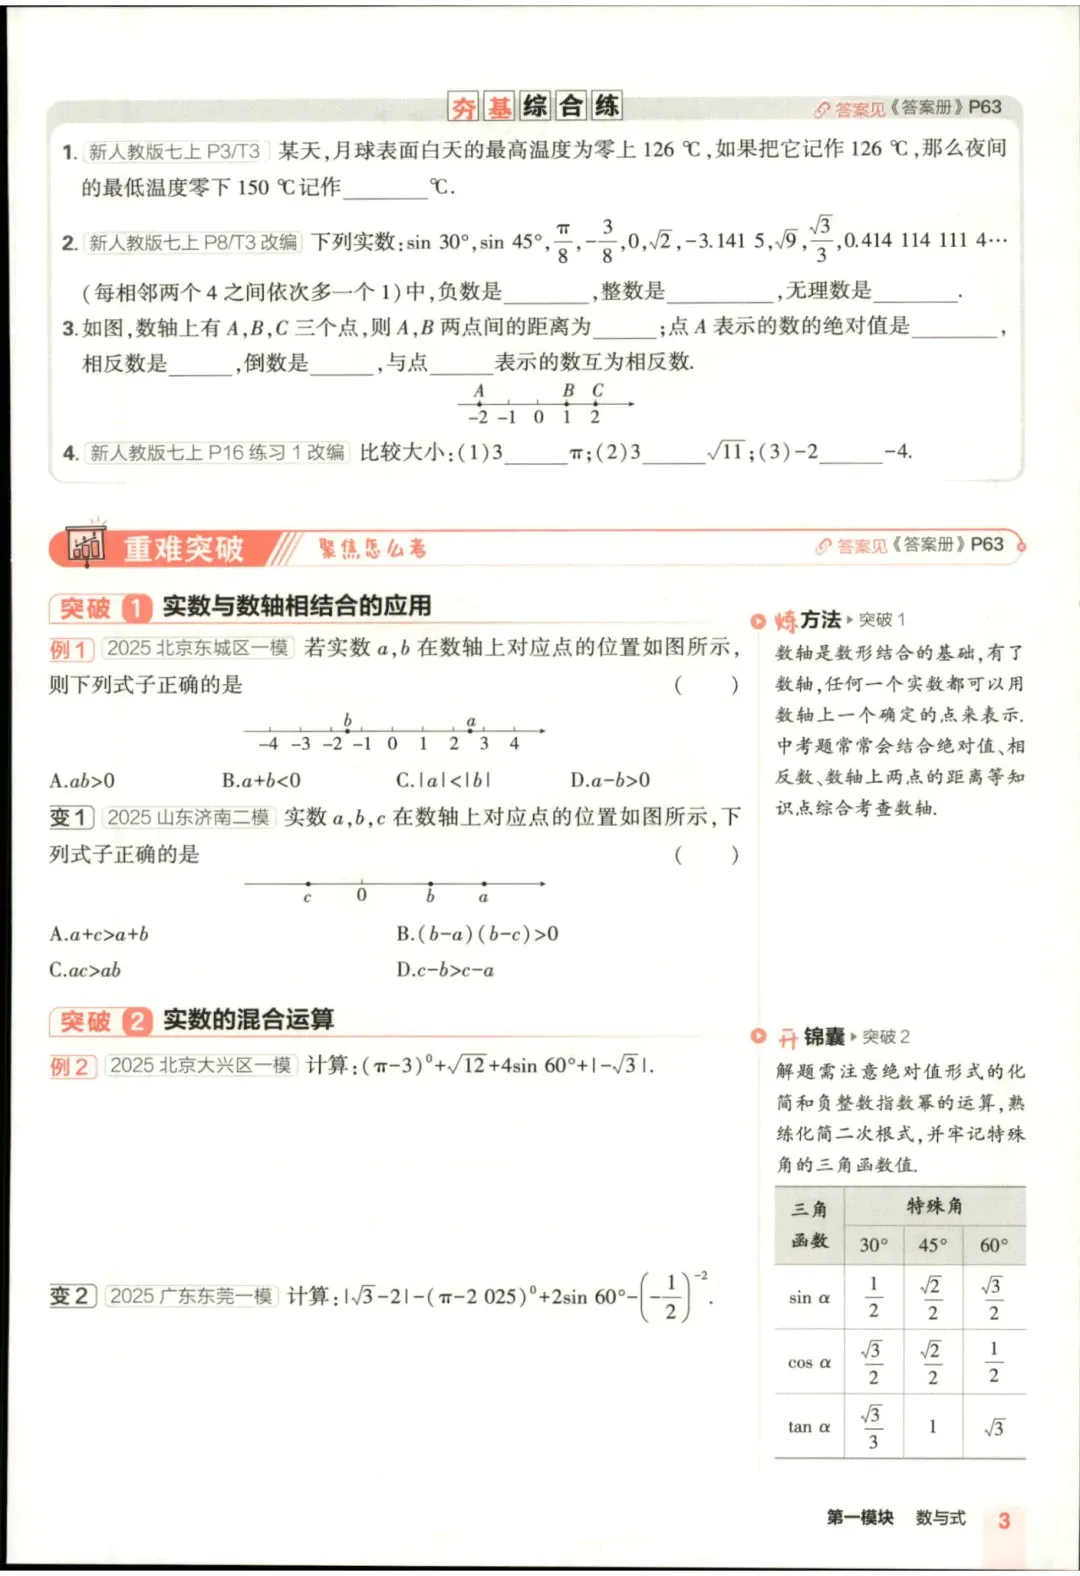 夯基综合练
答案见《答案册》P63
1. 新人教版七上 P3/T3 某天,月球表面白天的最高温度为零上 126 ℃,如果把它记作 126 ℃,那么夜间
的最低温度零下 150 ℃记作________℃.
2. 新人教版七上 P8/T3 改编 下列实数:sin 30°,sin 45°,π/8,-3/8,0,√2,-3.141 5,√9,√3/3,0.414 114 111 4…
(每相邻两个 4 之间依次多一个 1)中,负数是________,整数是__________,无理数是________.
3. 如图,数轴上有 A,B,C 三个点,则 A,B 两点间的距离为______;点 A 表示的数的绝对值是________,
相反数是______,倒数是______,与点______表示的数互为相反数.
A B C
-2 -1 0 1 2
4. 新人教版七上 P16 练习 1 改编 比较大小:(1)3______π;(2)3______√11;(3)-2______-4.
重难突破 聚焦怎么考
答案见《答案册》P63
突破 1 实数与数轴相结合的应用
例 1 2025 北京东城区一模 若实数 a,b 在数轴上对应点的位置如图所示,
则下列式子正确的是 ( )
b a
-4 -3 -2 -1 0 1 2 3 4
A.ab>0 B.a+b<0 C.|a|<|b| D.a-b>0
变 1 2025 山东济南二模 实数 a,b,c 在数轴上对应点的位置如图所示,下
列式子正确的是 ( )
c 0 b a
A.a+c>a+b B.(b-a)(b-c)>0
C.ac>ab D.c-b>c-a
炼方法 突破 1
数轴是数形结合的基础,有了
数轴,任何一个实数都可以用
数轴上一个确定的点来表示.
中考题常常会结合绝对值、相
反数、数轴上两点的距离等知
识点综合考查数轴.
突破 2 实数的混合运算
例 2 2025 北京大兴区一模 计算:(π-3)⁰+√12+4sin 60°+|-√3|.
变 2 2025 广东东莞一模 计算:|√3-2|-(π-2 025)⁰+2sin 60°-(-1/2)⁻².
开锦囊 突破 2
解题需注意绝对值形式的化
简和负整数指数幂的运算,熟
练化简二次根式,并牢记特殊
角的三角函数值.
三角函数 特殊角
30° 45° 60°
sin α 1/2 √2/2 √3/2
cos α √3/2 √2/2 1/2
tan α √3/3 1 √3
第一模块 数与式 3